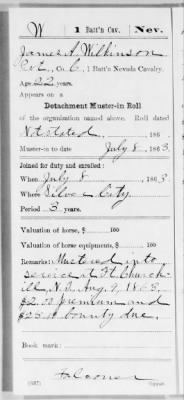 W 1 Batt'n Cav. Nev.
James A. Wilkinson
Pvt., Co. C, 1 Batt'n Nevada Cavalry.
Age 22 years.
Appears on a
Detachment Muster-in Roll
of the organization named above. Roll dated
Not Stated, 186
Muster-in to date July 8, 1863.
Joined for duty and enrolled:
When July 8, 1863.
Where Silver City
Period 3 years.
Valuation of horse, $ 100
Valuation of horse equipments, $ 100
Remarks: Mustered into
service at Ft. Church-
ill, N.T. Aug. 9, 1863,
$2.00 premium and
$25.00 bounty due.
Book mark:
(337) Copyist.